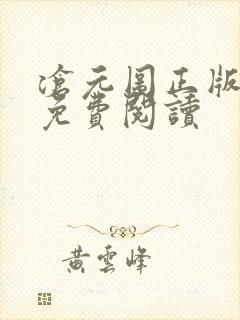 滄元圖正版
免費閱讀
黃雲峰